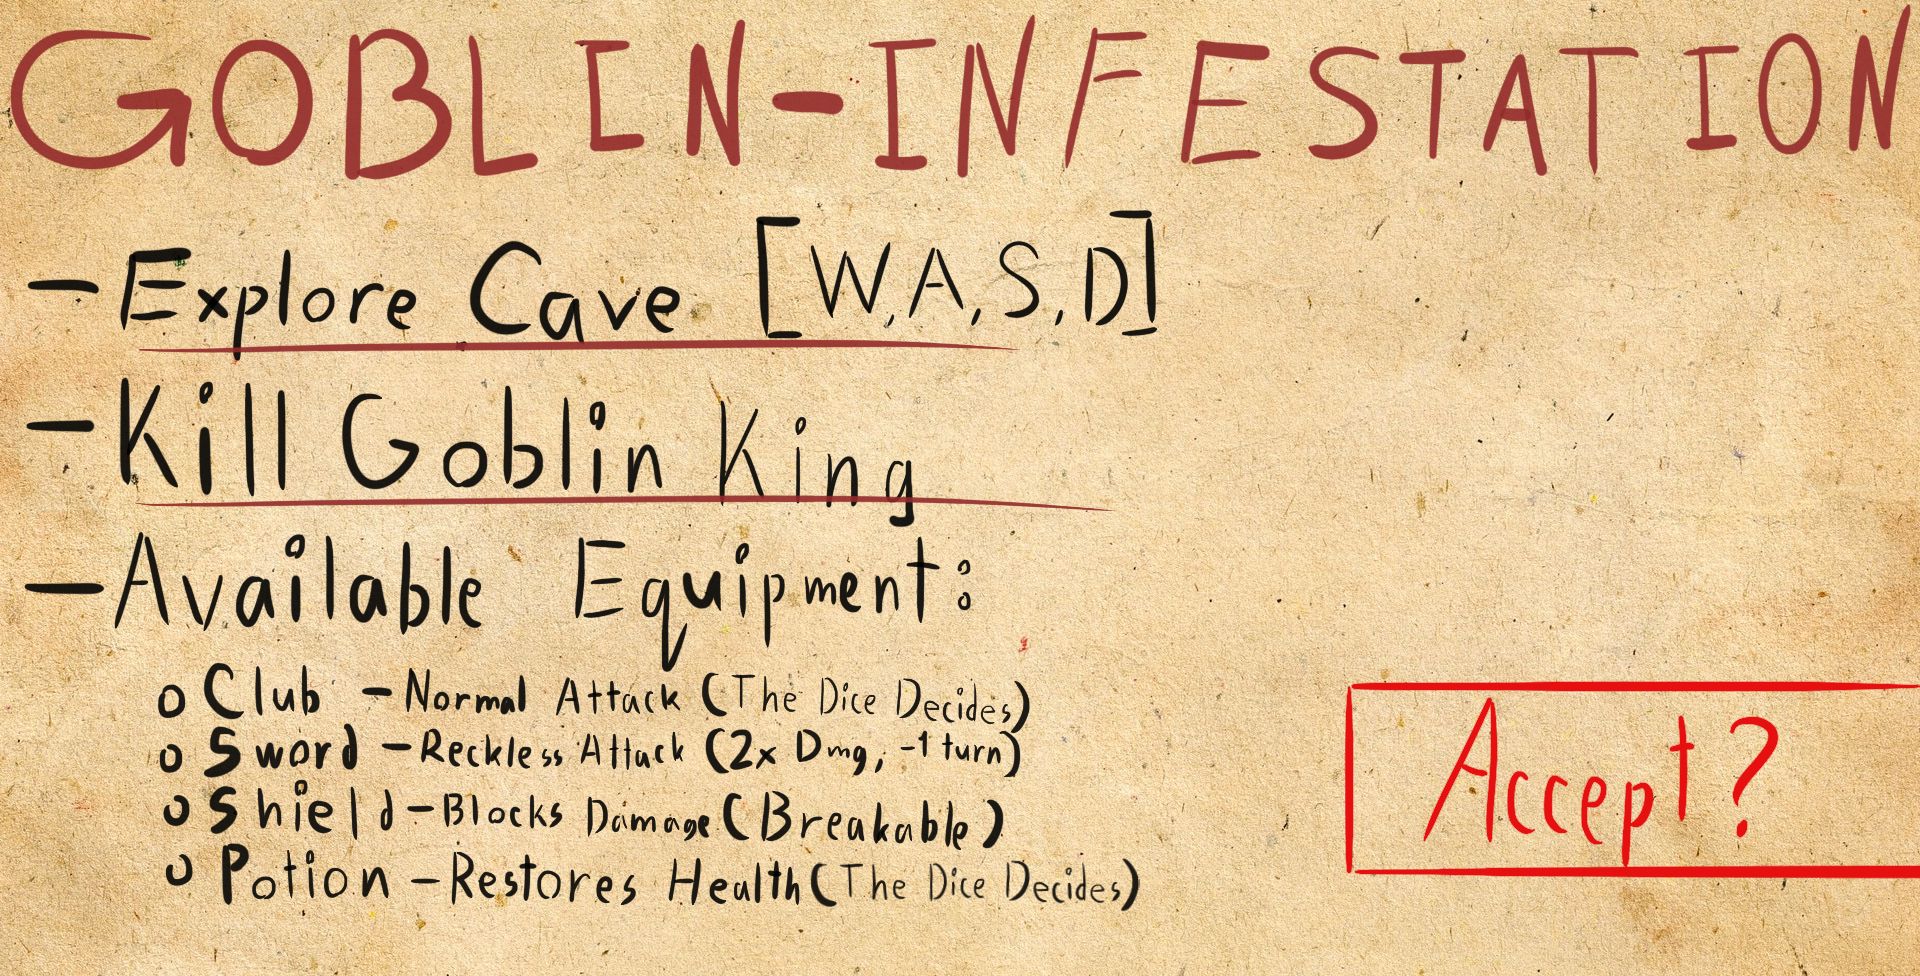 GOBLIN-INFESTATION
- Explore Cave [W,A,S,D]
- Kill Goblin King
- Available Equipment:
o Club - Normal Attack (The Dice Decides)
o Sword - Reckless Attack (2x Dmg, -1 turn)
o Shield - Blocks Damage (Breakable)
o Potion - Restores Health (The Dice Decides)
Accept?